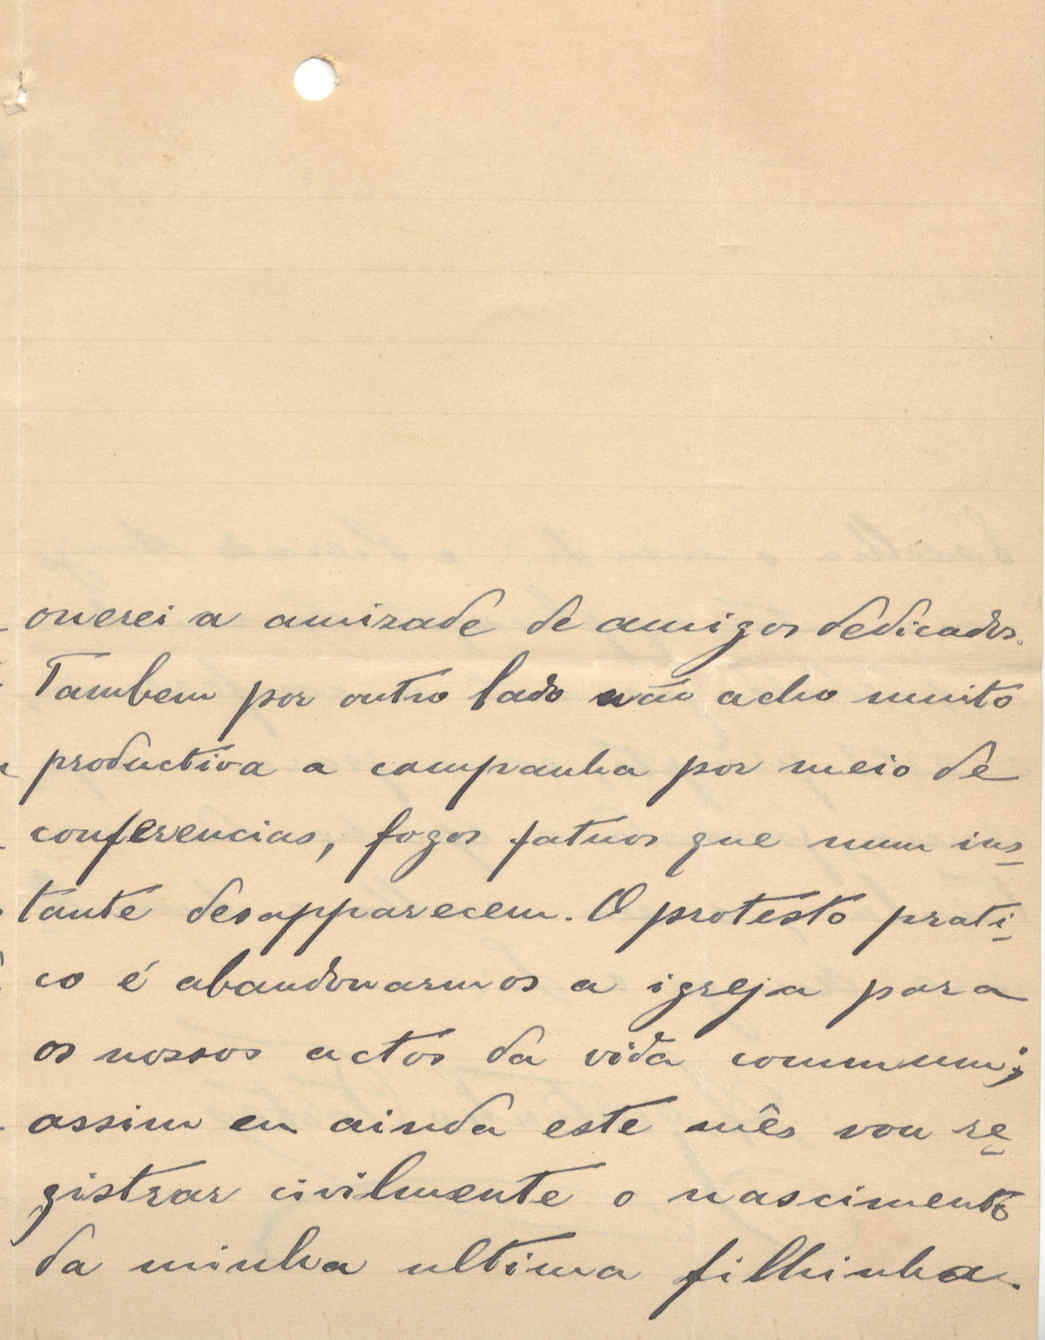 onerei a amizade de amigos dedicados.
Tambem por outro lado não acho muito
productiva a campanha por meio de
conferencias, fogos fatuos que num ins-
tante desapparecem. O protesto prati-
co é abandonarmos a igreja para
os nossos actos da vida commum;
assim eu ainda este mês vou re-
gistrar civilmente o nascimento
da minha ultima filhinha.